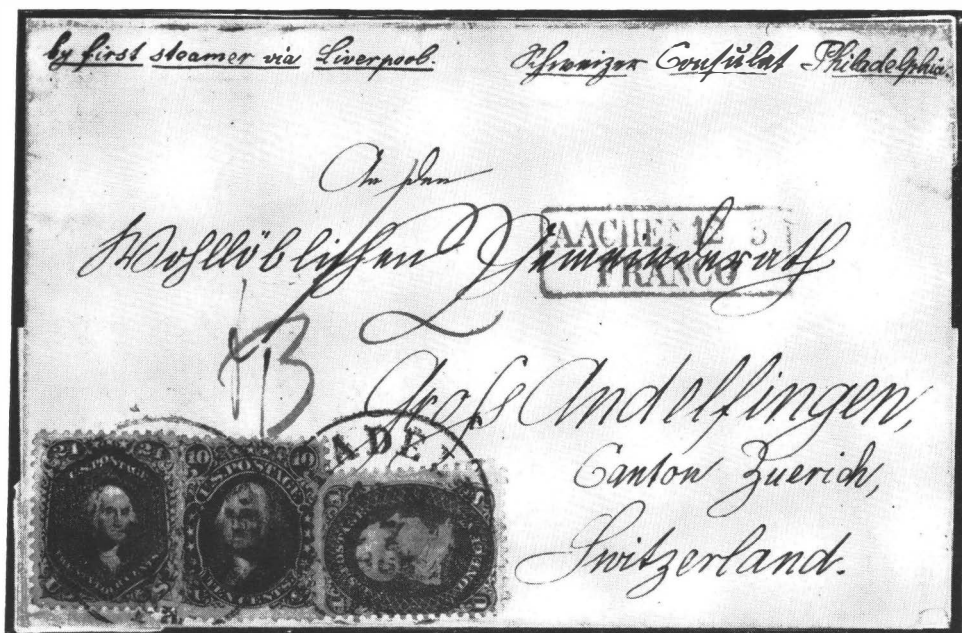 by first steamer via Liverpool.
Schweizer Consulat Philadelphia.
An den
Wohllöblichen Gemeinderath
AACHEN 12 5
FRANCO
Gross Andelfingen,
Canton Zuerich,
Switzerland.
ADE
24 24
U.S. POSTAGE
10 10
U.S. POSTAGE
TEN CENTS